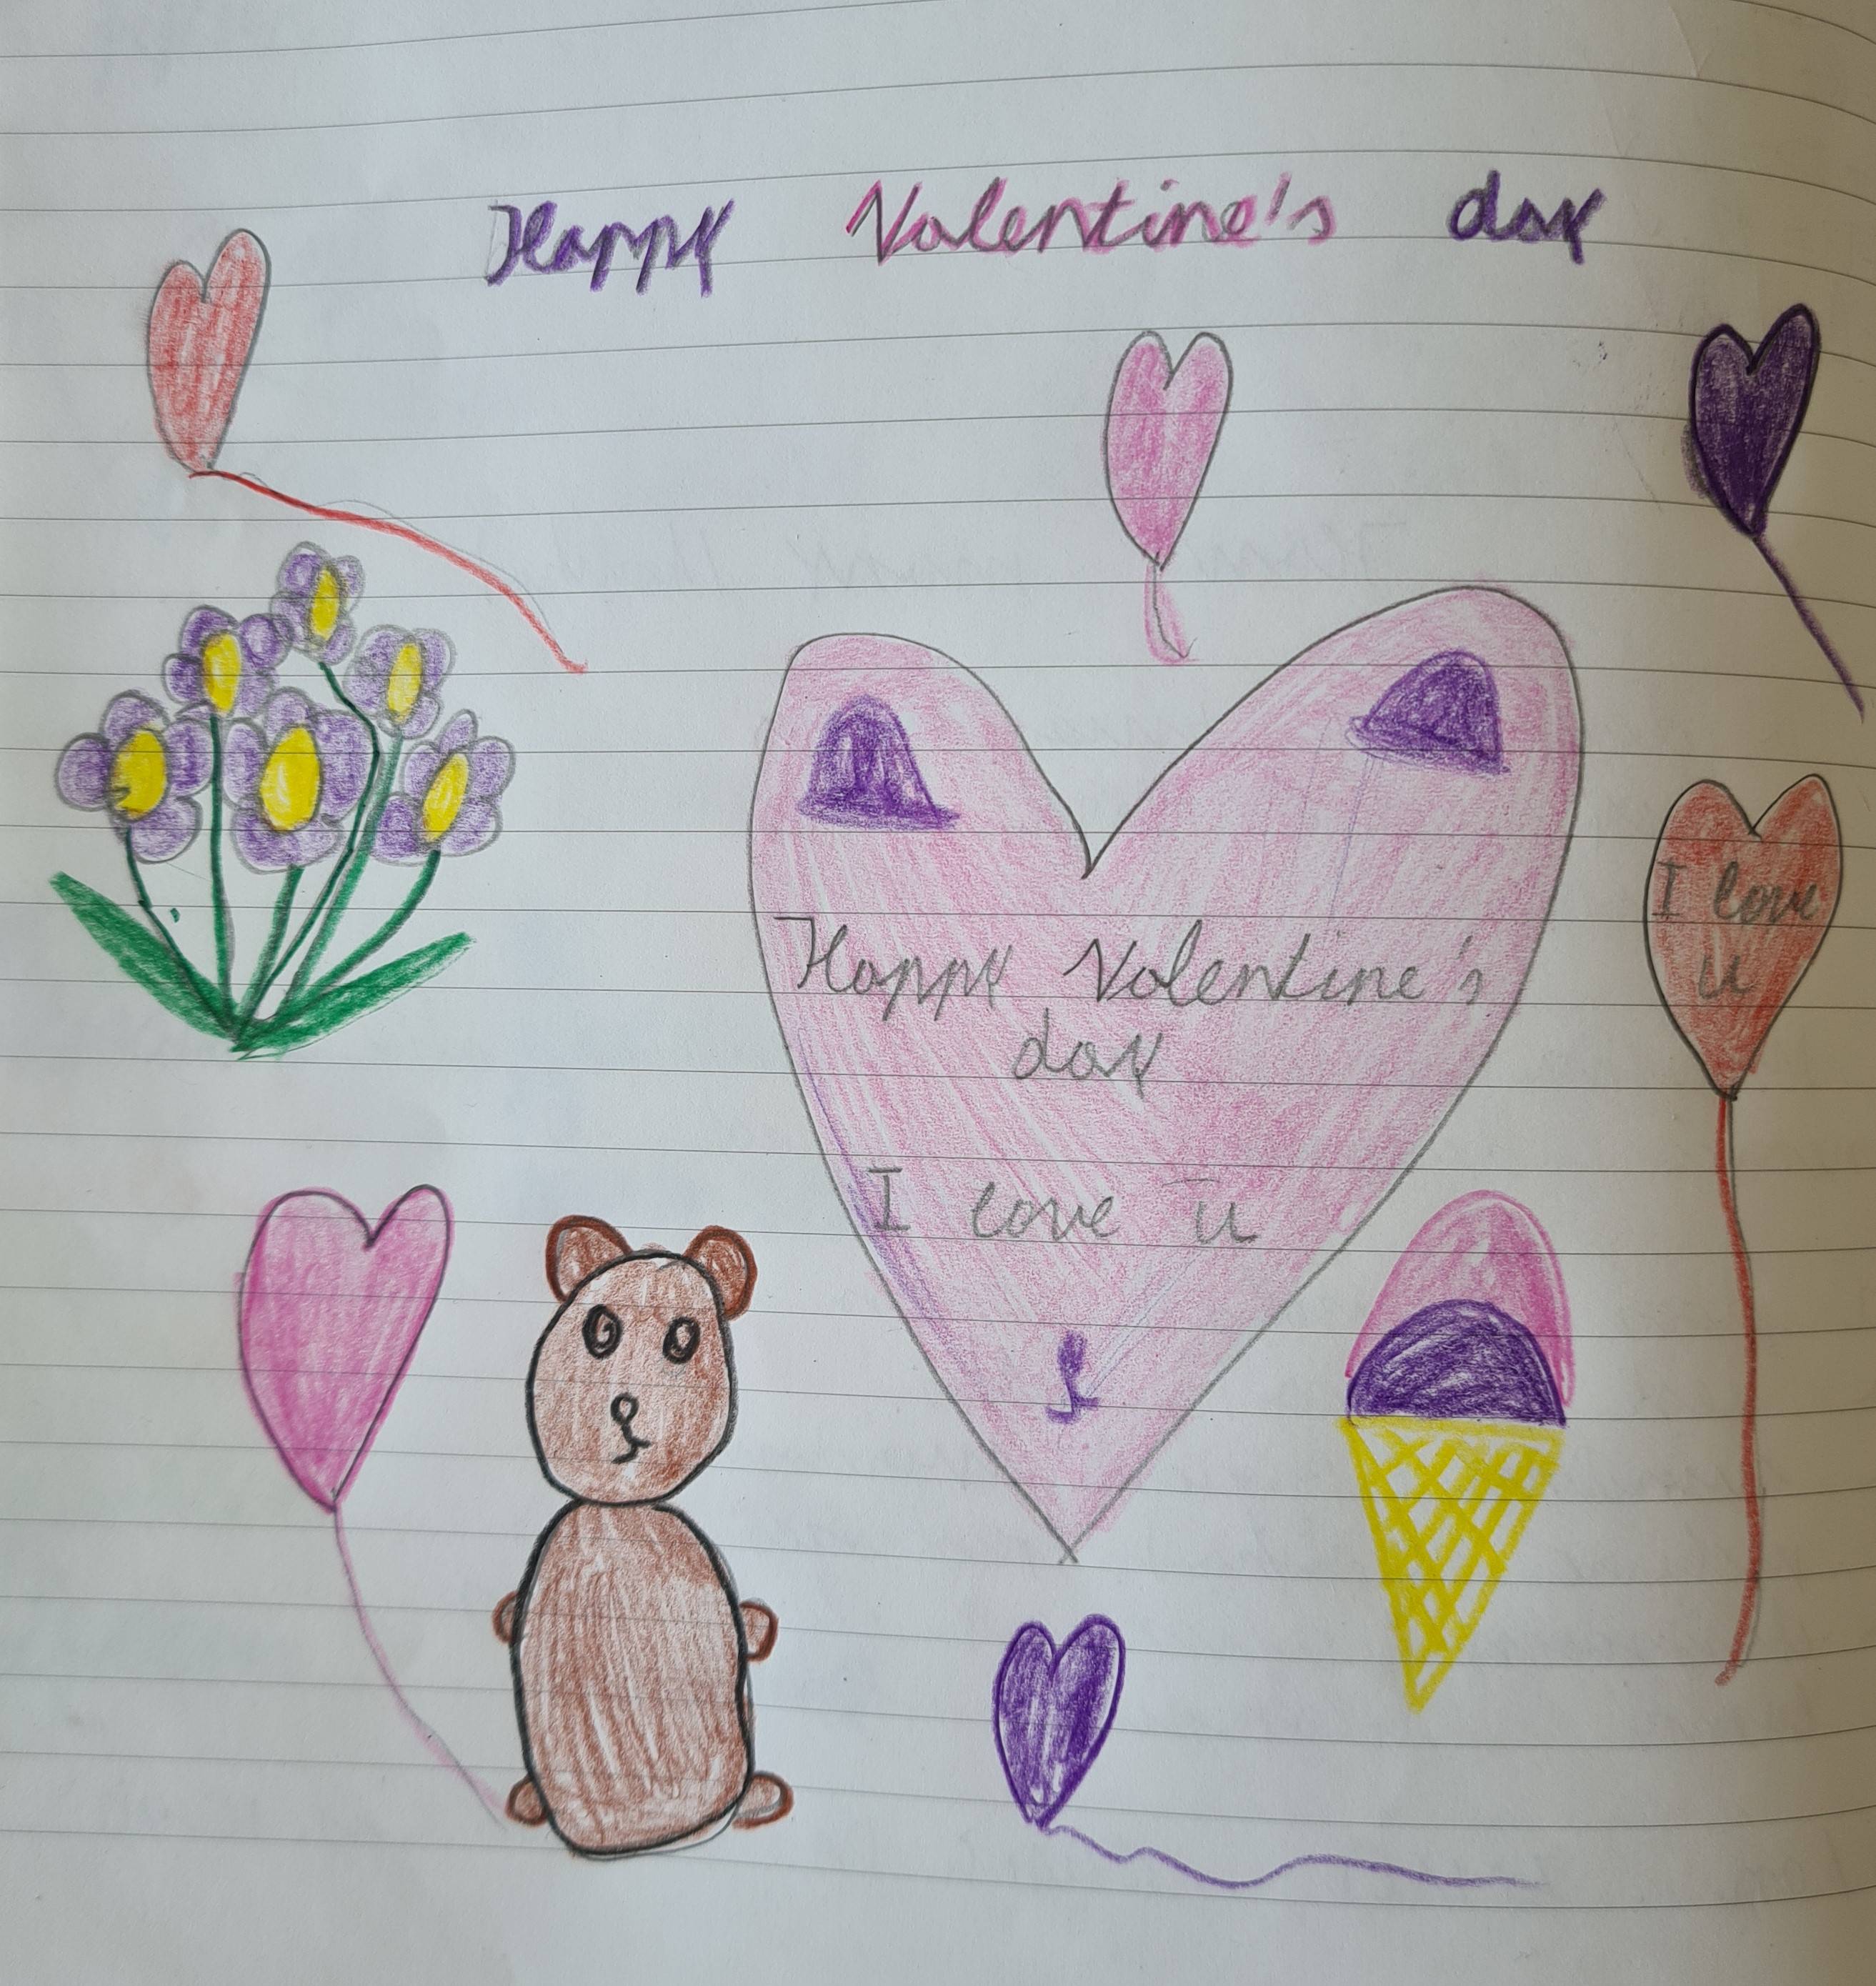 Happy Valentine's day
I love
u
Happy Valentine's
day
I love u